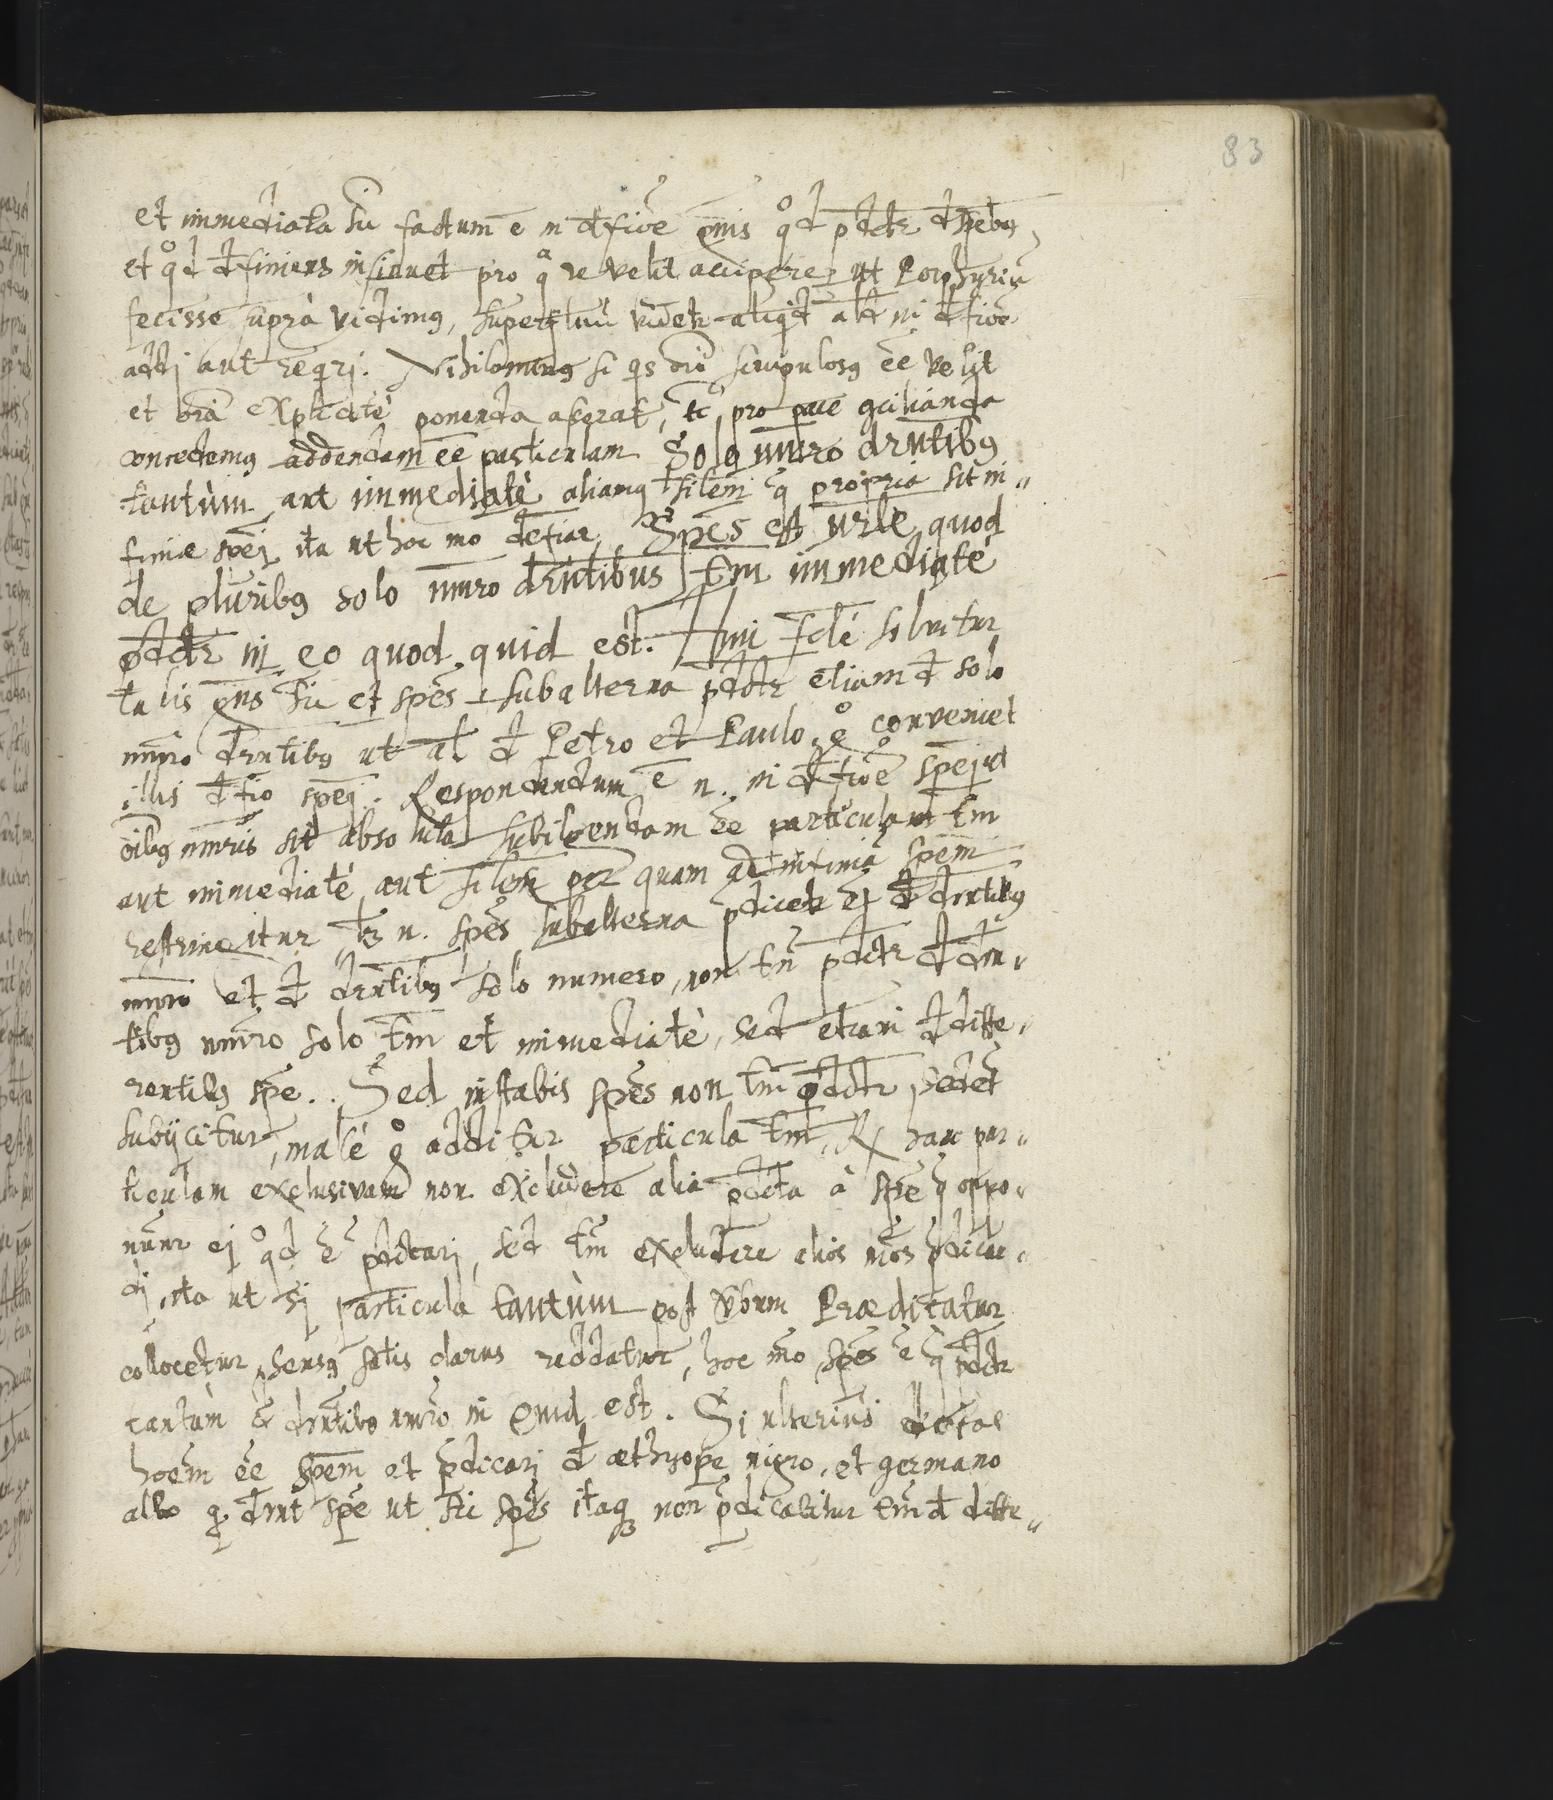 83
et immediata sū factum ē in dfiōe gñis qd pdctr d spēbꝯ,
et qd dfiniens insinuet pro qª re velit accipere, ut Porphyriū
fecisse suprà vidimꝯ, superfluū videtr aliqd ald in dfiōe
addi aut reqri. Nihilominꝯ si qs scrupulosꝯ ēe velit
et oīa explicitè ponenda aserat, tc pro pace ꝯcilianda
concedemꝯ addendam ēe particulam Solo nūro drntibꝯ
tantùm, aut immediatè aliamq silem q propria sit in„
fimæ spēi, ita ut hoc mō defiar, Spēs est ūrle, quod
de pluribꝯ solo nūro drntibus tm̄ immediatè
pdctr in eo quod quid est. Hinc fclè solvitur
talis gñs sū et spēs subalterna pdctr etiam d solo
nūro drntibꝯ ut al d Petro et Paulo, g° conveniet
illis dfio spēi. Respondendum ē n. in dfiōe spēi ut
oībꝯ nūris sit absoluta subilgendam ēe particulam tm̄
aut immediatè aut silem per quam ad infimā spēm
restringitur, tz n. spēs subalterna pdicetr d drntibꝯ
nūro et d drntibꝯ solo numero, non tn̄ pdctr d drn„
tibꝯ nūro solo tm̄ et immediatè, sed etiam d diffe„
rentibꝯ spē. Sed instabis spēs non tm̄ pdctr, sed et
subijcitur, malè g° additur particula tm̄, R hanc par„
ticulam exclusivam non excludere alia pdcta à spē q oppo„
nūnr ei qd ē pdcari, sed tm̄ excludere alios mōs pdican„
di, ita ut si particula tantùm post Vbum Prædicatur
collocetur, sensꝯ satis clarus reddatur, hoc mō spēs ē q pdctr
tantùm d drntibꝯ nūro in Quid est. Si ulteriùs dicas
hoēm ēe spēm et pdicari d æthyope nigro, et germano
albo q drnt spē ut sic spēs itaq non pdicabitur tm̄ d diffe„